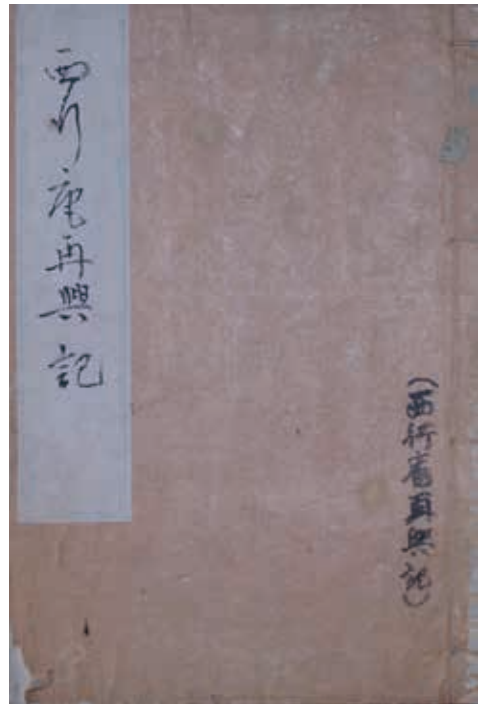 西行庵再興記
(西行菴再興記)